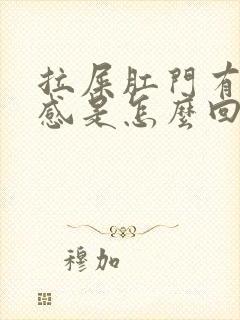 拉屎肛門有
感是怎麼回
穆加